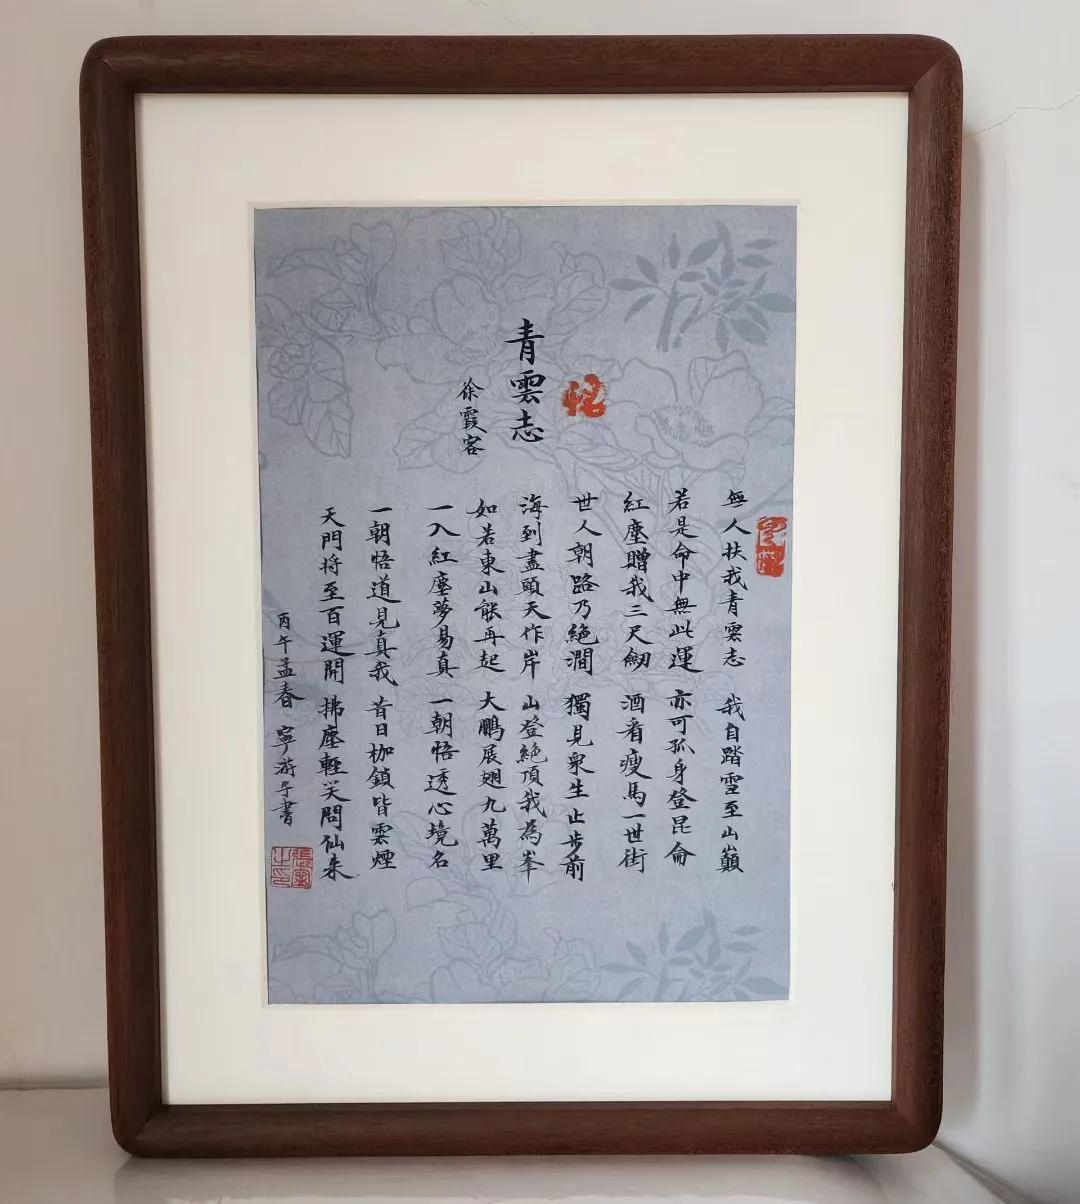 青雲志
徐霞客
無人扶我青雲志 我自踏雪至山巔
若是命中無此運 亦可孤身登昆侖
紅塵贈我三尺劒 酒肴瘦馬一世街
世人朝路乃絕澗 獨見衆生止步前
海到盡頭天作岸 山登絶頂我為峯
如若東山能再起 大鵬展翅九萬里
一入紅塵夢易真 一朝悟透心境名
一朝悟道見真我 昔日枷鎖皆雲煙
天門將至百運開 拂塵輕笑問仙来
丙午孟春 寧游子書